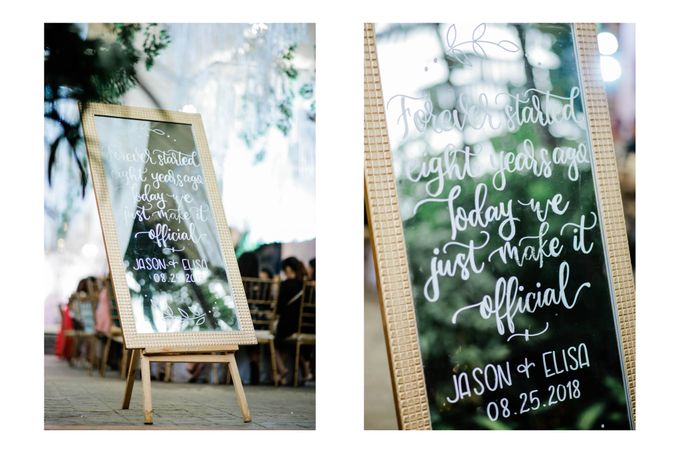 Forever started
eight years ago
Today we
just make it
official
JASON + ELISA
08.25.2018
Forever started
eight years ago
Today we
just make it
official
JASON + ELISA
08.25.2018